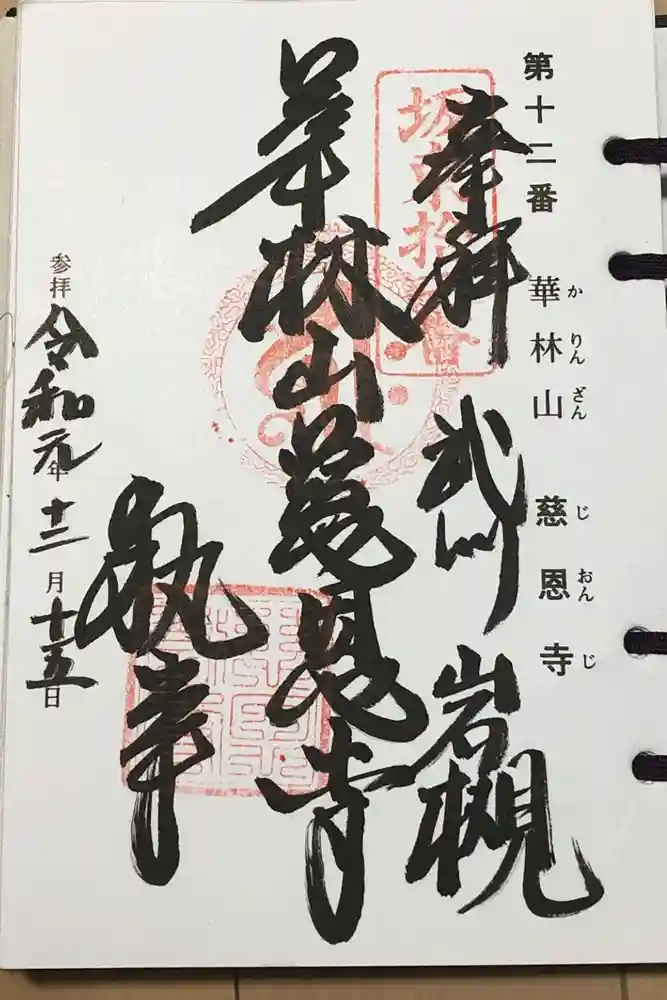 第十二番 華林山 慈恩寺
かりんざん じおんじ
奉拝 武州 岩槻
坂東拾二番
華林山慈恩寺
執事
参拝 令和元年十二月十五日